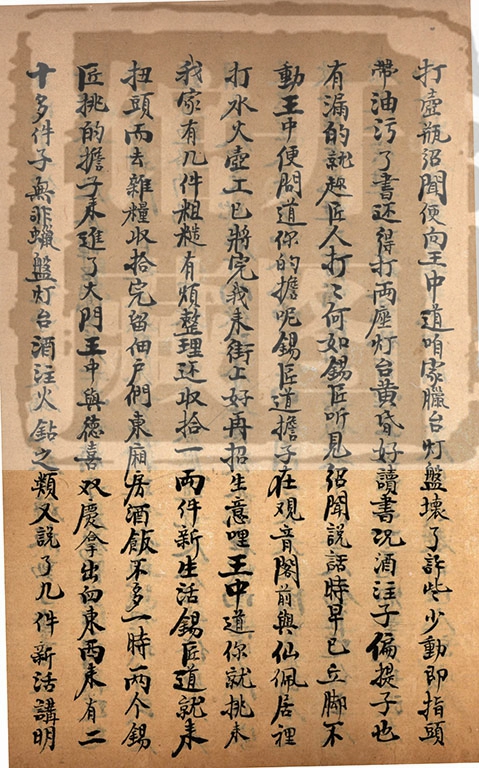 打壺瓶紹聞便向王中道咱家臘台灯盤壞了許些少動即指頭
帶油污了書还得打両座灯台黄昏好讀書况酒注子偏提子也
有漏的就趂匠人打〻何如錫匠听見紹聞說話時早已立脚不
動王中便問道你的擔呢錫匠道擔子在观音阁前與仙佩居裡
打水火壺工已將完我来街上好再招生意哩王中道你就挑来
我家有几件粗糙有煩整理还收拾一両件新生活錫匠道就来
扭頭而去雜糧收拾完留佃户們東廂房酒飯不多一時両个錫
匠挑的擔子来進了大門王中與德喜双慶拿出旧東西来有二
十多件子無非蠟盤灯台酒注火鉆之類又說了几件新活講明